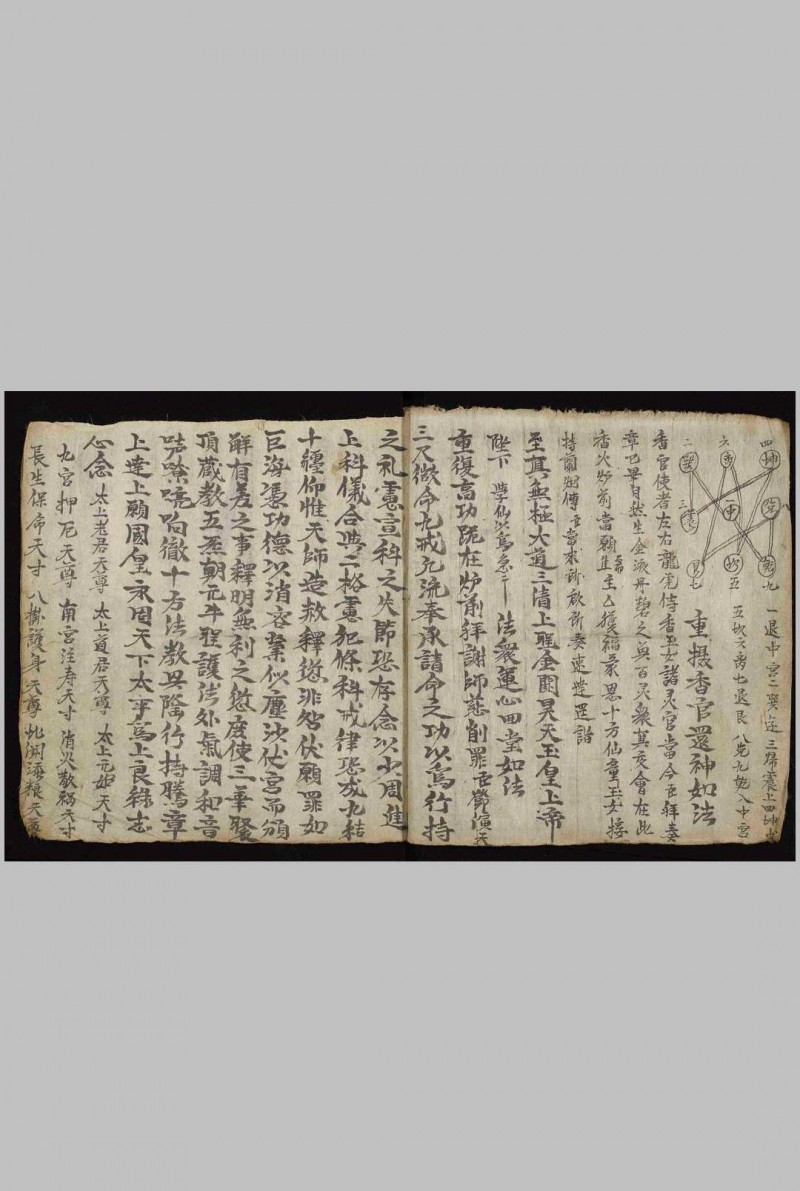 四 坤 兌 八
六 二 中 九
三 震 坎 五 艮 七
一退中宮二巽返三歸震上四坤
五坎六 七退艮八兌九 入中宮
重撮香官還神如法
香官使者左右龍虎侍香玉女諸灵官當今臣拜奏
章已畢自然生金液丹碧之 百灵眾真交會在此
香火炉前當願 主乞獲福蒙恩十方仙童玉女接
持蘭烟傅臣當求所啟所奏速達 詣
至真無極大道三清上聖金闕昊天玉皇上帝
陛下 學仙以為急 法衆運心四堂如法
重復高功跪在炉前拜謝師慈削罪臣鄧演
三尺微命九戒凡流奉承請命之功以為行持
之礼慮宣科之失節恐存念以少周進
上科儀合典二格慮犯條科戒律恐成九結
十纏仰惟天師造赦釋愆非咎伏願罪如
巨海憑功德以消容業似塵沙伏宮而頒
解有差之事釋明無利之愆度使三華聚
頂蔵教五炁朝元斗聖護法外氣調和音
響嘹喨 徹十方法教 陰行持騰章
上達上願國皇永固天下太平為上良緣志
心念 太上老君天尊 太上道君天尊 太上元始天尊
九宮押厄天尊 南宮注寿天尊 消灾散禍天尊
長生保命天尊 八 護身天尊